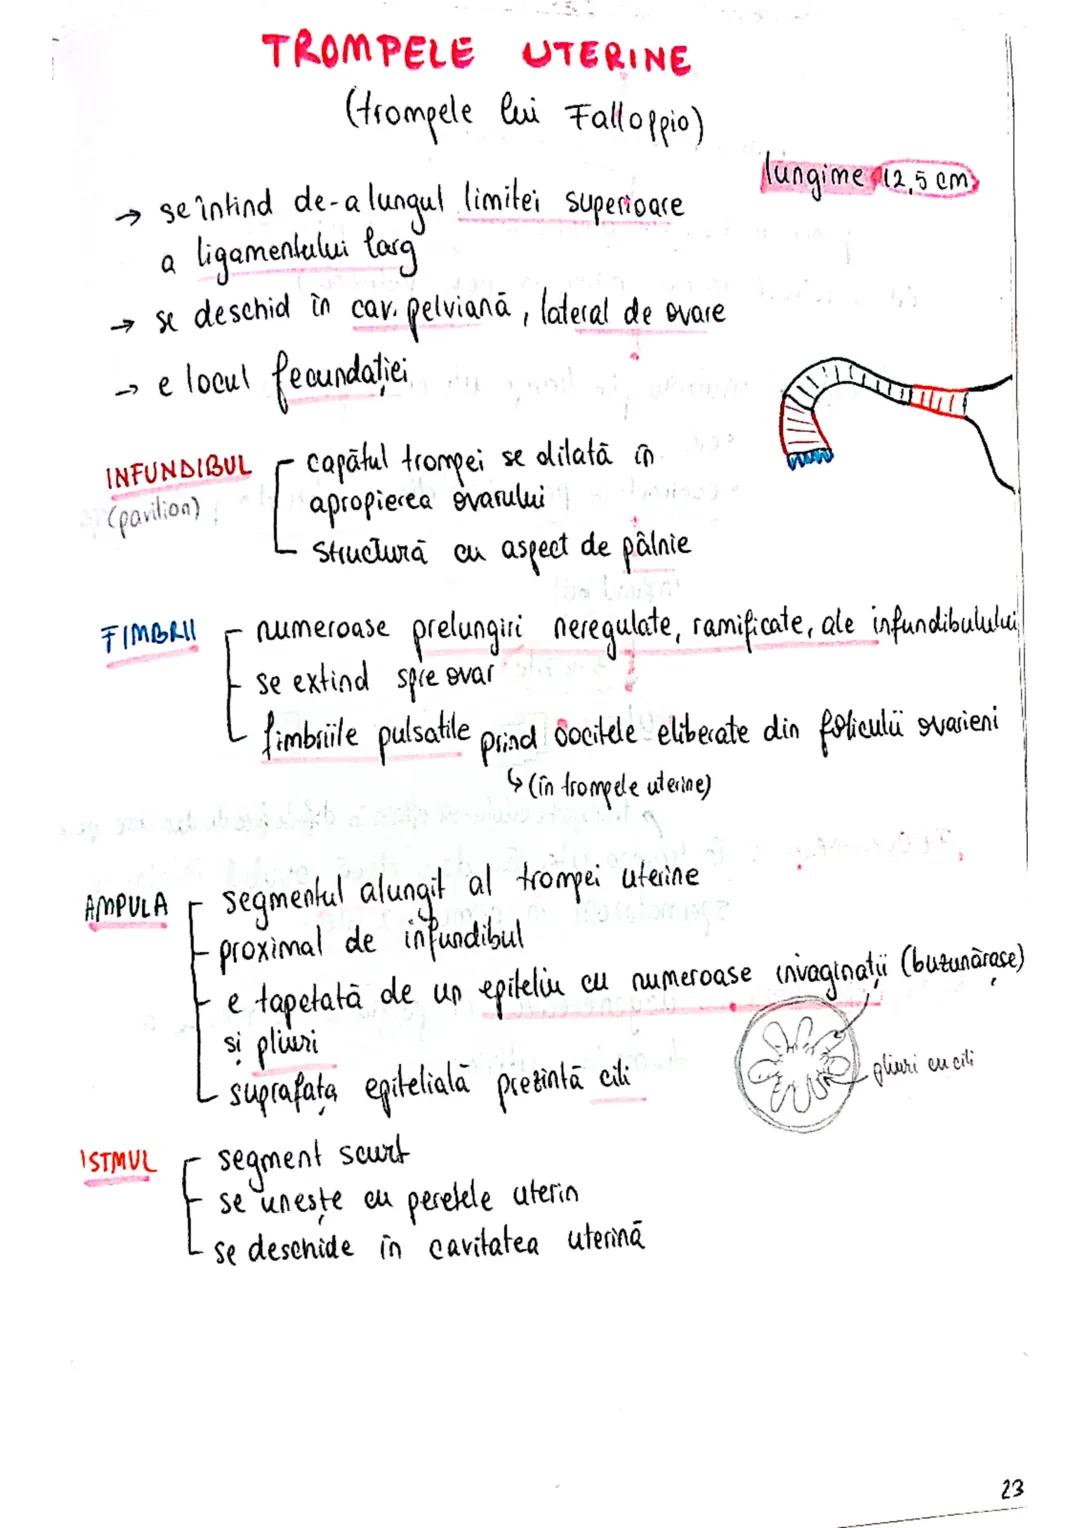 TROMPELE UTERINE
(trompele lui Falloppio)
lungime 12,5 cm
→ se întind de-a lungul limitei superioare
a ligamentului larg
→ se deschid în cav. pelviană, lateral de ovare
→ e locul fecundației
INFUNDIBUL
(pavilion)
capătul trompei se dilată în
apropierea ovarului
structură cu aspect de pâlnie
FIMBRII
numeroase prelungiri neregulate, ramificate, ale infundibulului
se extind spre ovar
fimbriile pulsatile prind oocitele eliberate din foliculii ovarieni
↳ (în trompele uterine)
AMPULA
segmentul alungit al trompei uterine
proximal de infundibul
e tapetată de un epiteliu cu numeroase invaginații (buzunărașe)
și pliuri
suprafața epitelială prezintă cili
pliuri cu cili
ISTMUL
segment scurt
se unește cu peretele uterin
se deschide în cavitatea uterină
23